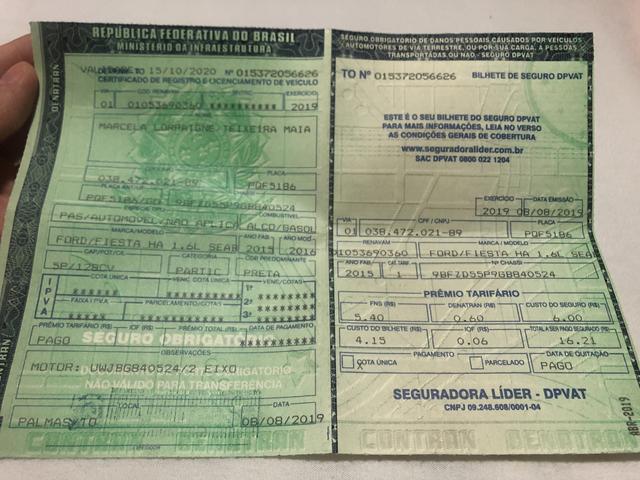 REPÚBLICA FEDERATIVA DO BRASIL
MINISTÉRIO DA INFRAESTRUTURA
DENATRAN
15/10/2020 Nº 015372056626
CERTIFICADO DE REGISTRO E LICENCIAMENTO DE VEÍCULO
VIA
EXERCÍCIO
01 01053690360 *********** 2019
MARCELA LORRAIGNE TEIXEIRA MAIA
PLACA
038.472.021-89 PQF5186
PLACA ANT/UF
COMBUSTÍVEL
PAS/AUTOMOVEL/NAO APLICA ALCO/GASOL
MARCA / MODELO
ANO FAB.
ANO MOD.
FORD/FIESTA HA 1.6L SEAB 2015 2016
CAP/POT/CIL
CATEGORIA
COR PREDOMINANTE
5P/128CV PARTIC PRETA
IPVA
COTA ÚNICA
VENC. COTA ÚNICA
VENC/COTAS
1ª
FAIXA I PVA
PARCELAMENTO/COTAS
2ª
3ª
PRÊMIO TARIFÁRIO (R$)
IOF (R$)
PRÊMIO TOTAL (R$)
DATA DE PAGAMENTO
PAGO SEGURO OBRIGATÓ
OBSERVAÇÕES
MOTOR: UWJBGB40524/2 EIXO
NÃO VÁLIDO PARA TRANSFERÊNCIA
LOCAL
DATA
PALMAS/TO 08/08/2019
CONTRAN DENATRAN
SEGURO OBRIGATÓRIO DE DANOS PESSOAIS CAUSADOS POR VEÍCULOS
AUTOMOTORES DE VIA TERRESTRE, OU POR SUA CARGA, A PESSOAS
TRANSPORTADAS OU NÃO - SEGURO DPVAT
TO Nº 015372056626 BILHETE DE SEGURO DPVAT
ESTE É O SEU BILHETE DO SEGURO DPVAT
PARA MAIS INFORMAÇÕES, LEIA NO VERSO
AS CONDIÇÕES GERAIS DE COBERTURA
www.seguradoralider.com.br
SAC DPVAT 0800 022 1204
EXERCÍCIO
DATA EMISSÃO
2019 08/08/2019
VIA
CPF / CNPJ
PLACA
01 038.472.021-89 PQF5186
RENAVAM
MARCA / MODELO
01053690360 FORD/FIESTA HA 1.6L SEA
ANO FAB.
CAT. TARIF.
Nº CHASSI
2015 1 9BFZD55P9GB840524
PRÊMIO TARIFÁRIO
FNS (R$)
DENATRAN (R$)
CUSTO DO SEGURO (R$)
5.40 0.60 6.00
CUSTO DO BILHETE (R$)
IOF (R$)
TOTAL A SER PAGO SEGURADO (R$)
4.15 0.06 16.21
PAGAMENTO
DATA DE QUITAÇÃO
COTA ÚNICA
PARCELADO
PAGO
SEGURADORA LÍDER - DPVAT
CNPJ 09.248.608/0001-04
ABR-2019
CONTRAN DENATRAN